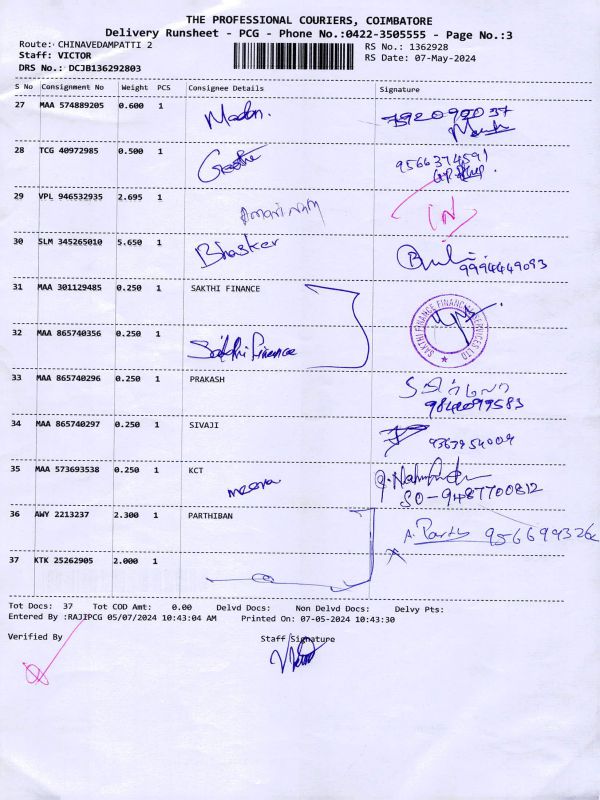 THE PROFESSIONAL COURIERS, COIMBATORE
Delivery Runsheet - PCG - Phone No.:0422-3505555 - Page No.:3
Route: CHINAVEDAMPATTI 2 RS No.: 1362928
Staff: VICTOR RS Date: 07-May-2024
DRS No.: DCJB136292803
S No Consignment No Weight PCS Consignee Details Signature
27 MAA 574889205 0.600 1
28 TCG 40972985 0.500 1
9566374591
29 VPL 946532935 2.695 1
30 SLM 345265010 5.650 1 Bhasker
9994449093
31 MAA 301129485 0.250 1 SAKTHI FINANCE
SAKTHI FINANCE FINANCIAL SERVICES LTD
32 MAA 865740356 0.250 1 Sakthi Finance
33 MAA 865740296 0.250 1 PRAKASH
9842099583
34 MAA 865740297 0.250 1 SIVAJI
35 MAA 573693538 0.250 1 KCT
meena SO-9487700812
36 AWY 2213237 2.300 1 PARTHIBAN
A. Parthi
37 KTK 25262905 2.000 1
Tot Docs: 37 Tot COD Amt: 0.00 Delvd Docs: Non Delvd Docs: Delvy Pts:
Entered By :RAJIPCG 05/07/2024 10:43:04 AM Printed On: 07-05-2024 10:43:30
Verified By Staff Signature